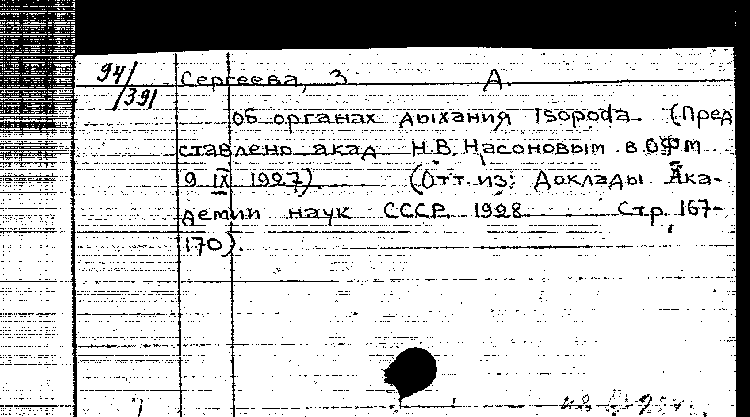 94/
/391
Сергеева, З А.
Об органах дыхания Isopoda. (Пред
ставлено акад Н.В. Насоновым в ОФМ
9 IX 1927) (Отт. из: Доклады Ака-
демии наук СССР, 1928 Стр. 167-
170).